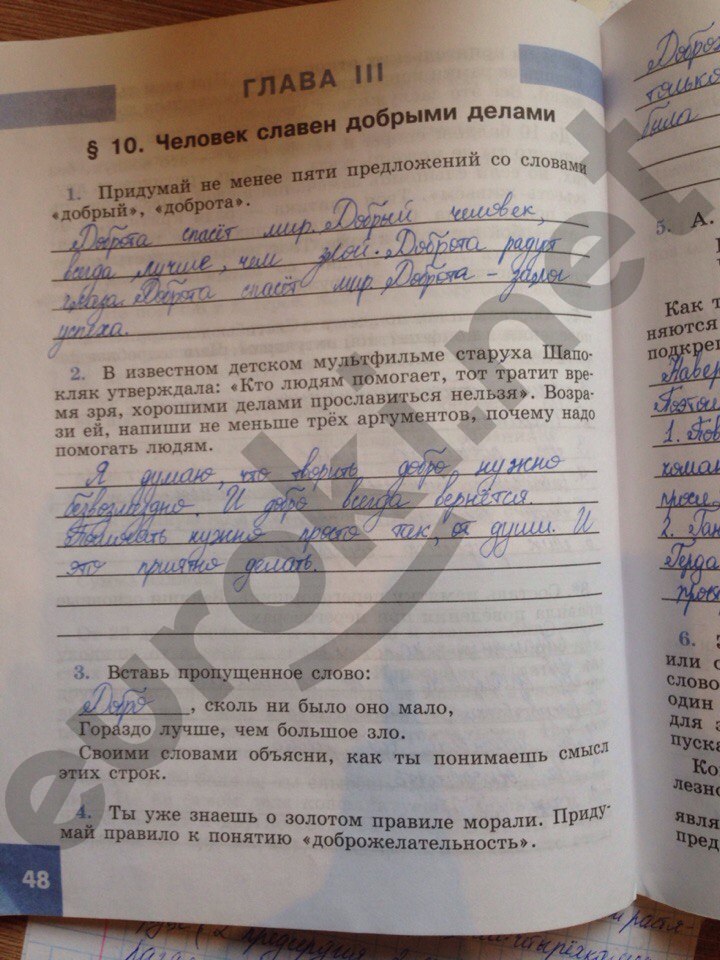 ГЛАВА III
§ 10. Человек славен добрыми делами
1. Придумай не менее пяти предложений со словами
«добрый», «доброта».
Доброта спасёт мир. Добрый человек,
всегда лучше, чем злой. Доброта радует
глаза. Доброта спасёт мир. Доброта – залог
успеха.
2. В известном детском мультфильме старуха Шапо-
кляк утверждала: «Кто людям помогает, тот тратит вре-
мя зря, хорошими делами прославиться нельзя». Возра-
зи ей, напиши не меньше трёх аргументов, почему надо
помогать людям.
Я думаю, что творить добро нужно
безвозмездно. И добро всегда вернётся.
Помогать нужно просто так, от души. И
это приятно делать.
3. Вставь пропущенное слово:
Добро, сколь ни было оно мало,
Гораздо лучше, чем большое зло.
Своими словами объясни, как ты понимаешь смысл
этих строк.
4. Ты уже знаешь о золотом правиле морали. Приду-
май правило к понятию «доброжелательность».
48
только
была
5. А.
Как т
няются
подкреп
Поэтом
1. Пов
2.
Герда
6.
или с
слово
один
для з
пуска
Ко
лезно
явля
пред
euroki.net